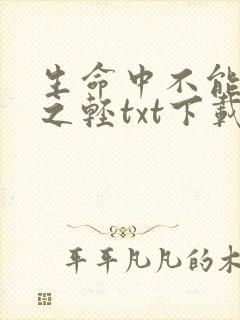 生命中不能
之轻txt下载
平平凡凡的木